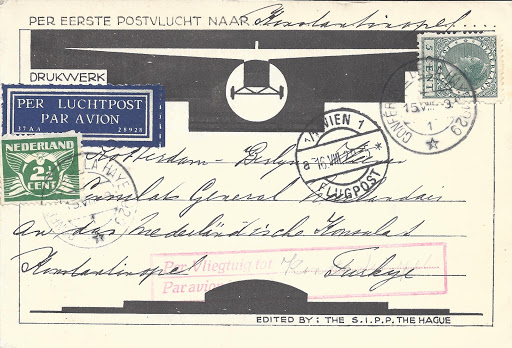 PER EERSTE POSTVLUCHT NAAR Konstantinopel....
DRUKWERK
5 CENT
PER LUCHTPOST
PAR AVION
37AA 28928
NEDERLAND
2½
CENT
LA HAYE
1929
1
WIEN 1
FLUGPOST
Rotterdam - Berlijn - Wien
Consulat General Néerlandais
An das Niederländische Konsulat
Konstantinopel Turkye
Per Vliegtuig tot
Par avion
EDITED BY: THE S.I.P.P. THE HAGUE